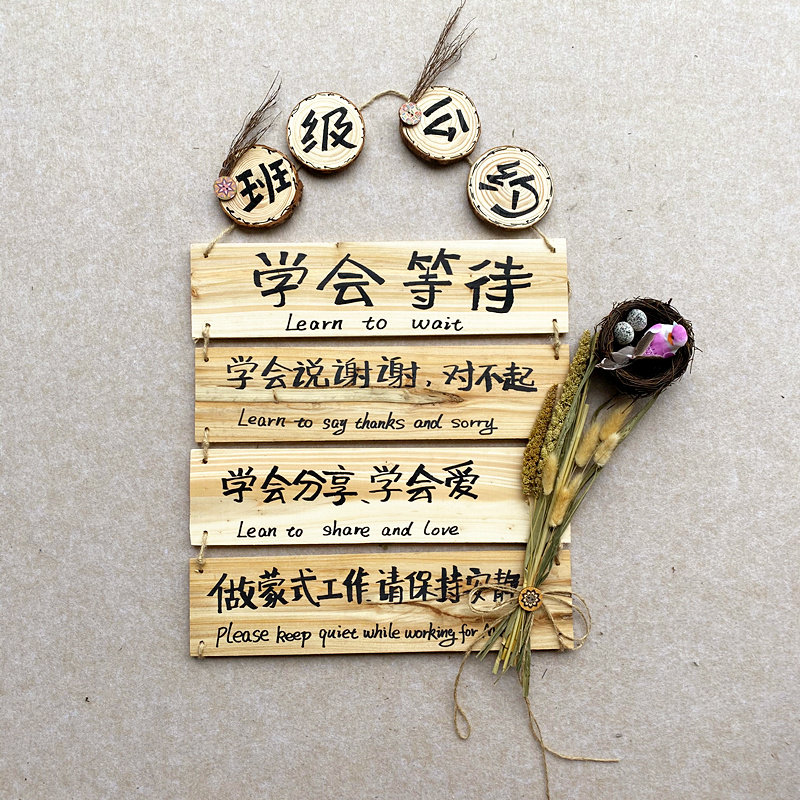 班级公约
学会等待
Learn to wait
学会说谢谢，对不起
Learn to say thanks and sorry
学会分享、学会爱
Lean to share and love
做蒙式工作、请保持安静
Please keep quiet while working for